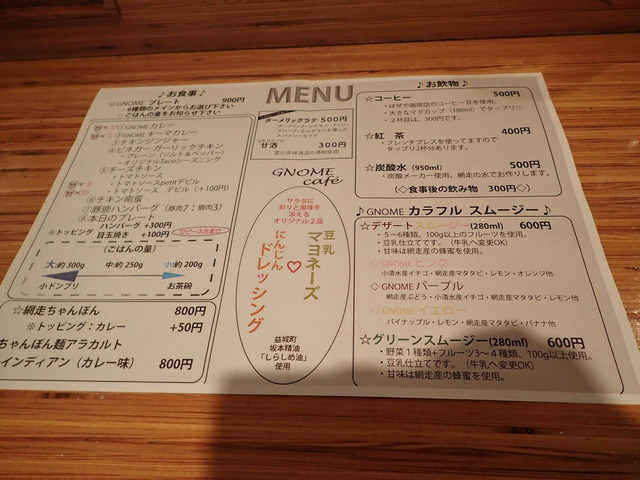 ♪お食事♪
☆GNOME プレート 900円
6種類のメインからお選び下さい
ごはんの量をお知らせ下さい
①GNOME カレー
②GNOME キーマカレー
③チキンジンジャー
④ビネガーガーリックチキン
・プレーン(ソルト&ペッパー)
・オリジナルTacoシーズニング
⑤チーズチキン
・トマトソース
・トマトソースpetitデビル
・トマトソース デビル (+100円)
⑥チキン南蛮
⑦豚鹿ハンバーグ (豚肉7:鹿肉3)
⑧本日のプレート
※トッピング ハンバーグ +300円
目玉焼き +100円
(ごはんの量)
大:約300g 中:約250g 小:約200g
小ドンブリ お茶碗
☆網走ちゃんぽん 800円
※トッピング:カレー +50円
ちゃんぽん麺アラカルト
インディアン (カレー味) 800円
MENU
ターメリックラテ 500円
甘酒 300円
GNOME
café
サラダに
彩りと風味を
添える
オリジナル2品
豆乳
マヨネーズ
♡
にんじん
ドレッシング
益城町
坂本精油
「しらしめ油」
使用
♪お飲物♪
☆コーヒー 500円
・はぜや珈琲店のコーヒー豆を使用。
・大きなマグカップ (180ml) でタップリ◎
・2杯目は、300円です。
☆紅 茶 400円
・フレンチプレスを使ってますので
タップリ2杯分あります。
☆炭酸水 (950ml) 500円
・炭酸メーカー使用。網走の水でお作りします。
(◇食事後の飲み物 300円◇)
♪GNOME カラフル スムージー♪
☆デザートスムージー(280ml) 600円
・5~6種類、100g以上のフルーツを使用。
・豆乳仕立てです。(牛乳へ変更OK)
・甘味は網走産の蜂蜜を使用。
◇GNOME ピンク
小清水産イチゴ・網走産マタタビ・レモン・オレンジ他
◇GNOME パープル
網走産ぶどう・小清水産イチゴ・網走産マタタビ・レモン他
◇GNOME イエロー
パイナップル・レモン・網走産マタタビ・バナナ他
☆グリーンスムージー(280ml) 600円
・野菜1種類+フルーツ3~4種類、100g以上使用。
・豆乳仕立てです。(牛乳へ変更OK)
・甘味は網走産の蜂蜜を使用。